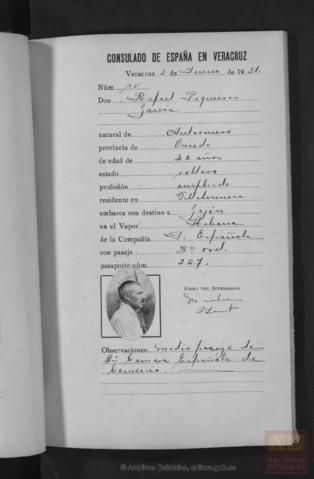 CONSULADO DE ESPAÑA EN VERACRUZ
Veracruz 2 de Junio de 1921.
Núm
Don Rafael
García
natural de
provincia de Oviedo
de edad de 43 años
estado soltero
profesión empleado
residente en Villahermosa
embarca con destino a Gijón
en el Vapor Habana
de la Compañía T. Española
con pasaje 3ª ord.
pasaporte núm. 227.
FIRMA DEL INTERESADO
Observaciones: medio pasaje de
la Camara Española de
Comercio.
© Archivos Estatales, cultura.gob.es
ARCHIVOS
ESTATALES